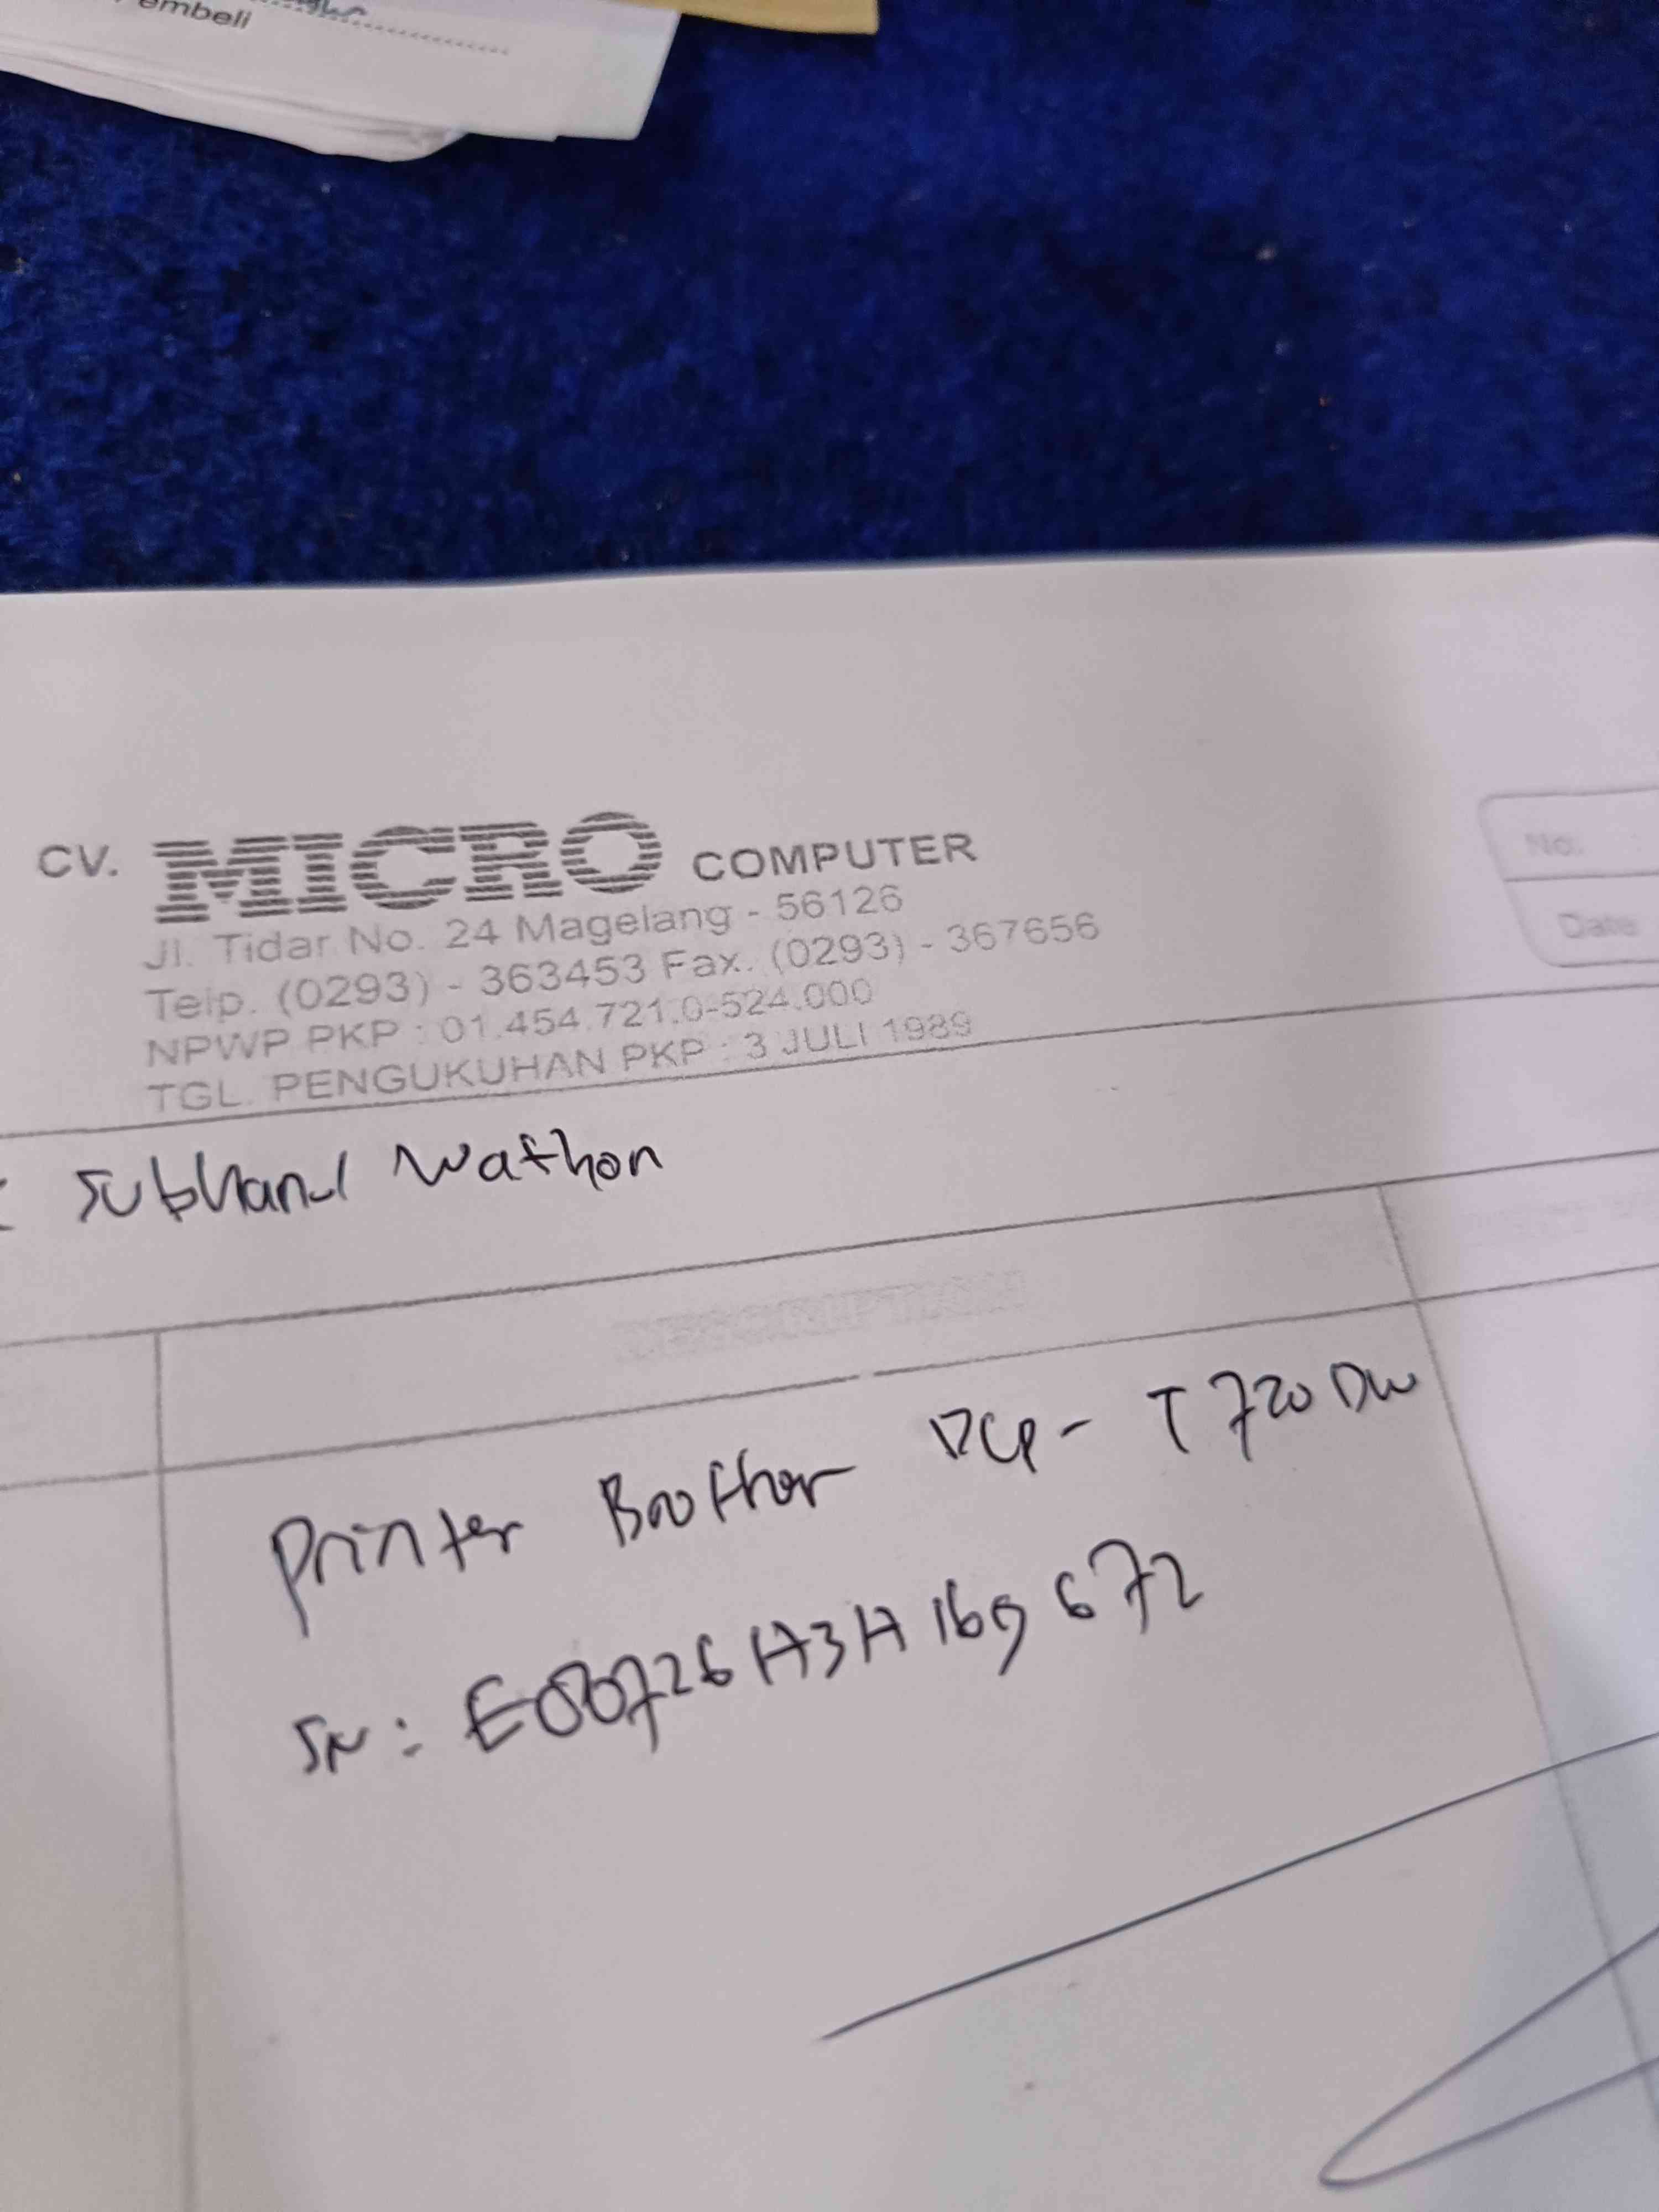 embeli
CV. MICRO COMPUTER
Jl. Tidar No. 24 Magelang - 56126
Telp. (0293) - 363453 Fax. (0293) - 367656
NPWP PKP : 01.454.721.0-524.000
TGL. PENGUKUHAN PKP : 3 JULI 1989
No.
Date
Subhanul Wathon
DESCRIPTION
Printer Brother DCP - T720DW
SN : E80726H3H169672